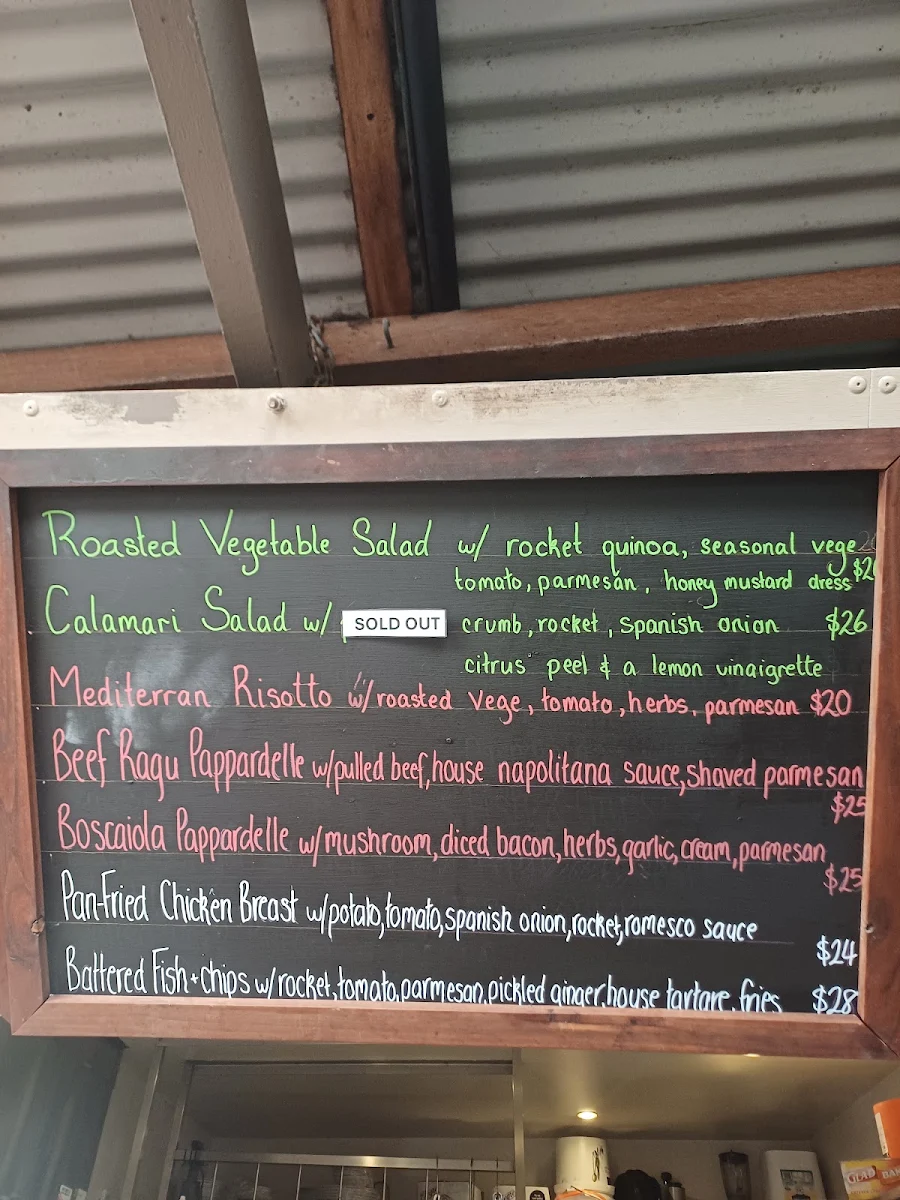 Roasted Vegetable Salad w/ rocket quinoa, seasonal vege
tomato, parmesan, honey mustard dress
Calamari Salad w/ SOLD OUT crumb, rocket, spanish onion $26
citrus peel & a lemon vinaigrette
Mediterran Risotto w/ roasted vege, tomato, herbs, parmesan $20
Beef Ragu Pappardelle w/pulled beef, house napolitana sauce, shaved parmesan
$25
Boscaiola Pappardelle w/mushroom, diced bacon, herbs, garlic, cream, parmesan
$25
Pan-Fried Chicken Breast w/potato, tomato, spanish onion, rocket, romesco sauce
$24
Battered Fish+chips w/rocket, tomato, parmesan, pickled ginger, house tartare, fries $28
GLAD BAK